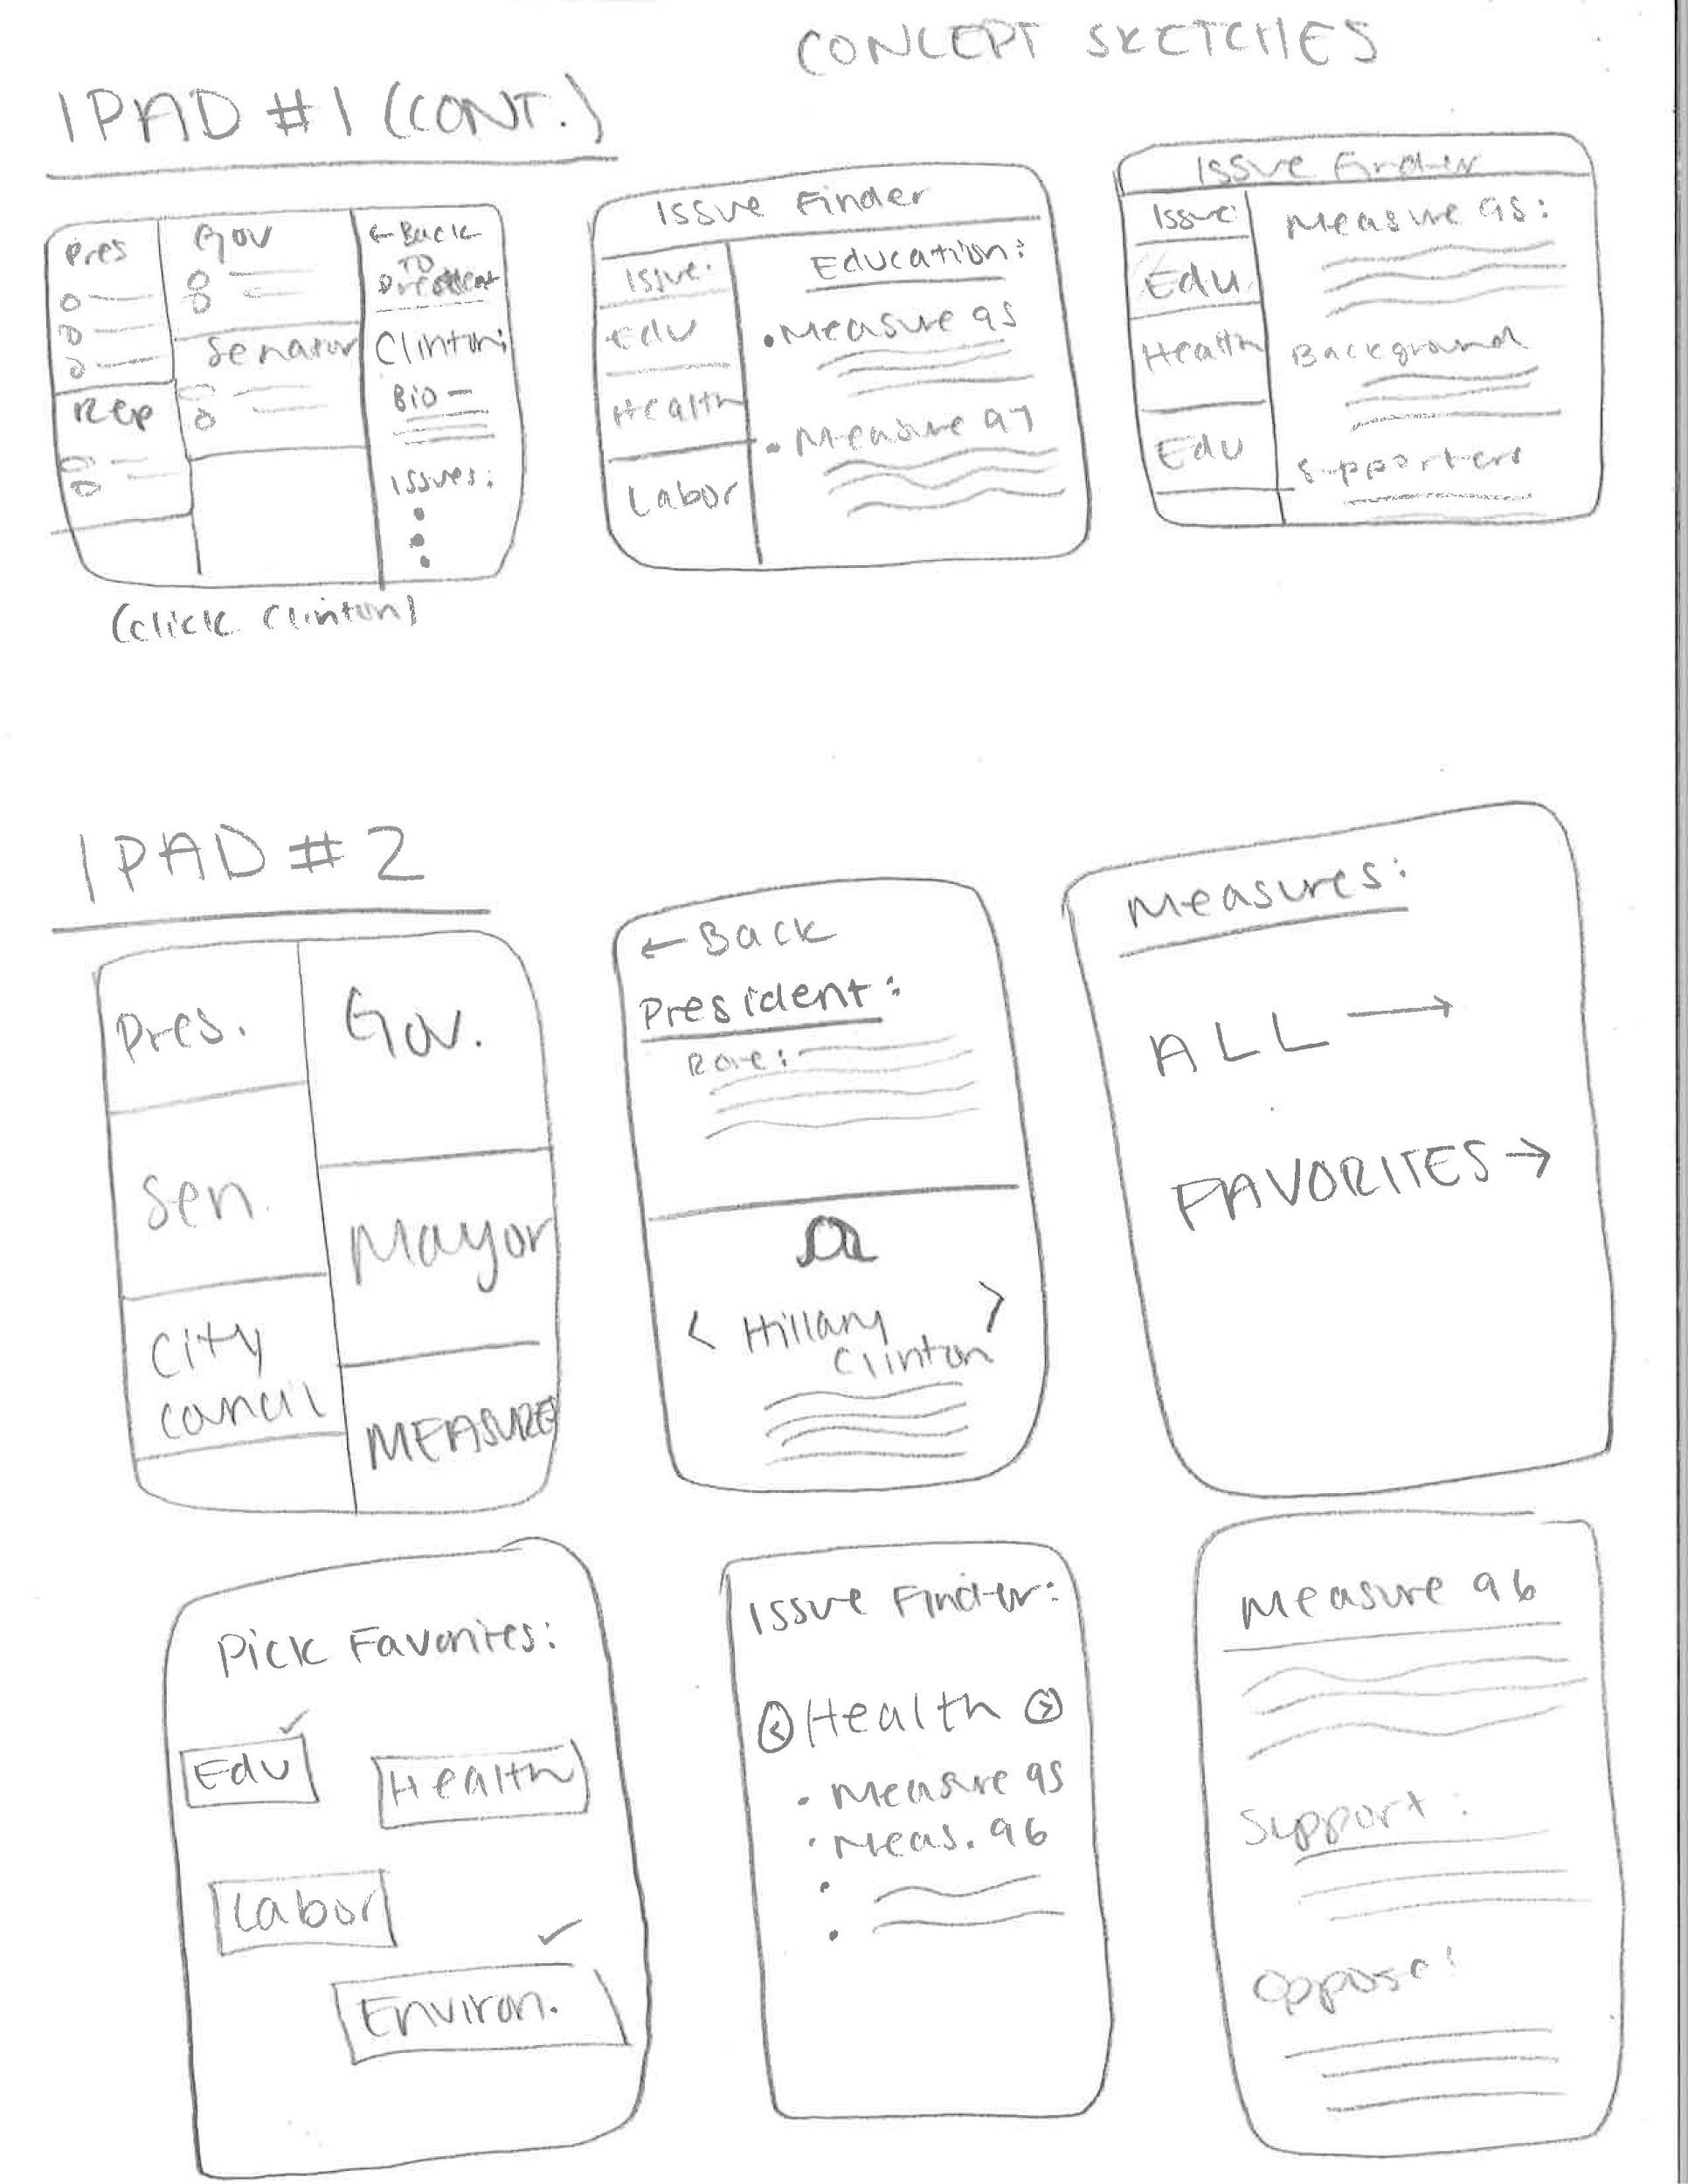 CONCEPT SKETCHES
IPAD #1 (CONT.)
Pres
Rep
Gov
Senator
← Back
TO
President
Clinton:
Bio –
Issues:
(click Clinton)
Issue Finder
Issue:
Edu
Health
Labor
Education:
• Measure 95
• Measure 97
Issue Finder
Issue:
Edu
Health
Edu
Measure 95:
Background
Supporters
IPAD #2
Pres.
Sen.
City
Council
Gov.
Mayor
MEASURE
← Back
President:
Role:
< Hillary >
Clinton
Measures:
ALL →
FAVORITES →
Pick Favorites:
Edu ✓
Health
Labor
Environ. ✓
Issue Finder:
< Health >
• Measure 95
• Meas. 96
Measure 96
Support:
Oppose: